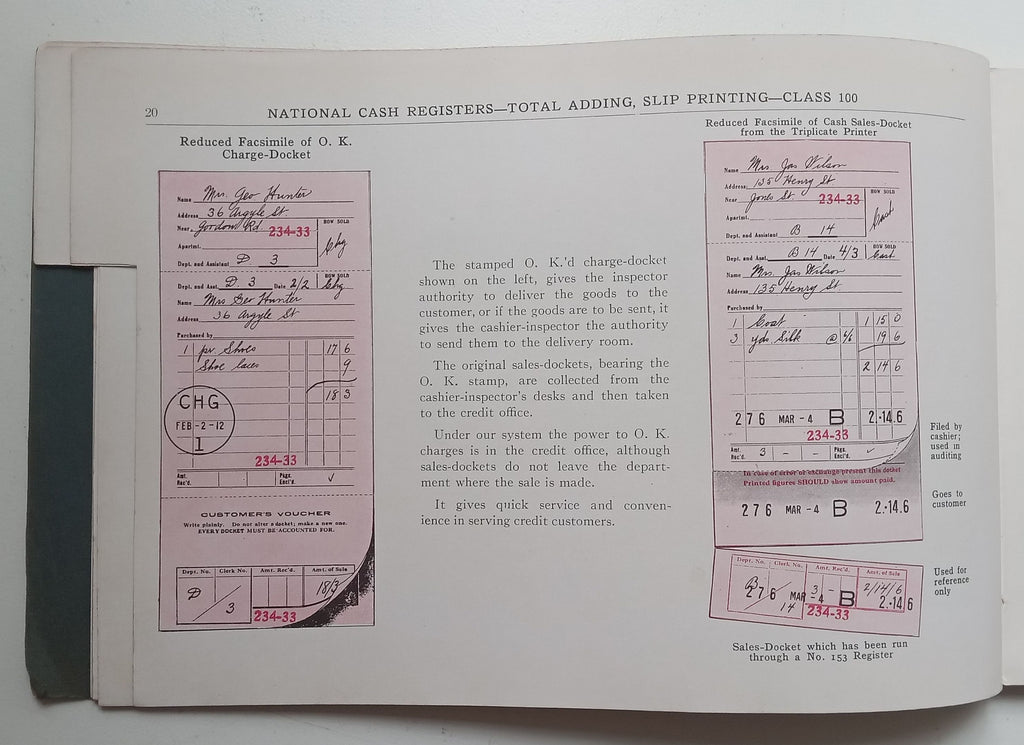 20
NATIONAL CASH REGISTERS—TOTAL ADDING, SLIP PRINTING—CLASS 100
Reduced Facsimile of O. K.
Charge-Docket
Name Mrs. Geo Hunter
Address 36 Argyle St.
Near Gordon Rd 234-33
HOW SOLD
Chg
Apartmt.
Dept. and Assistant D 3
Dept. and Asst. D. 3 Date 2/2 HOW SOLD Chg
Name Mrs Geo Hunter
Address 36 Argyle St
Purchased by
1 pr Shoes 17 6
Shoe laces 9
18 3
CHG
FEB-2-12
1
234-33
Amt. Rec'd. Pkgs. Encl'd. ✓
CUSTOMER'S VOUCHER
Write plainly. Do not alter a docket; make a new one.
EVERY DOCKET MUST BE ACCOUNTED FOR.
Dept. No. Clerk No. Amt. Rec'd. Amt. of Sale
D / 3 18/3
234-33
The stamped O. K.'d charge-docket
shown on the left, gives the inspector
authority to deliver the goods to the
customer, or if the goods are to be sent, it
gives the cashier-inspector the authority
to send them to the delivery room.
The original sales-dockets, bearing the
O. K. stamp, are collected from the
cashier-inspector's desks and then taken
to the credit office.
Under our system the power to O. K.
charges is in the credit office, although
sales-dockets do not leave the depart-
ment where the sale is made.
It gives quick service and conven-
ience in serving credit customers.
Reduced Facsimile of Cash Sales-Docket
from the Triplicate Printer
Name Mrs Jas Wilson
Address 135 Henry St
Near Jones St. 234-33
HOW SOLD
Cash
Apartmt.
Dept. and Assistant B 14
Dept. and Asst. B 14 4/3 HOW SOLD Cash
Name Mrs. Jas Wilson
Address 135 Henry St
Purchased by
1 Coat 1 15 0
3 yds Silk @ 6/6 19 6
2 14 6
276 MAR-4 B 2.-14.6
234-33
Amt. Rec'd. 3 - - Pkgs. Encl'd. ✓
In case of error or exchange present this docket
Printed figures SHOULD show amount paid.
276 MAR-4 B 2.-14.6
Dept. No. Clerk No. Amt. Rec'd. Amt. of Sale
B / 14 3 - 2/14/6
276 MAR-4 B 2.-14 6
234-33
Filed by
cashier;
used in
auditing
Goes to
customer
Used for
reference
only
Sales-Docket which has been run
through a No. 153 Register